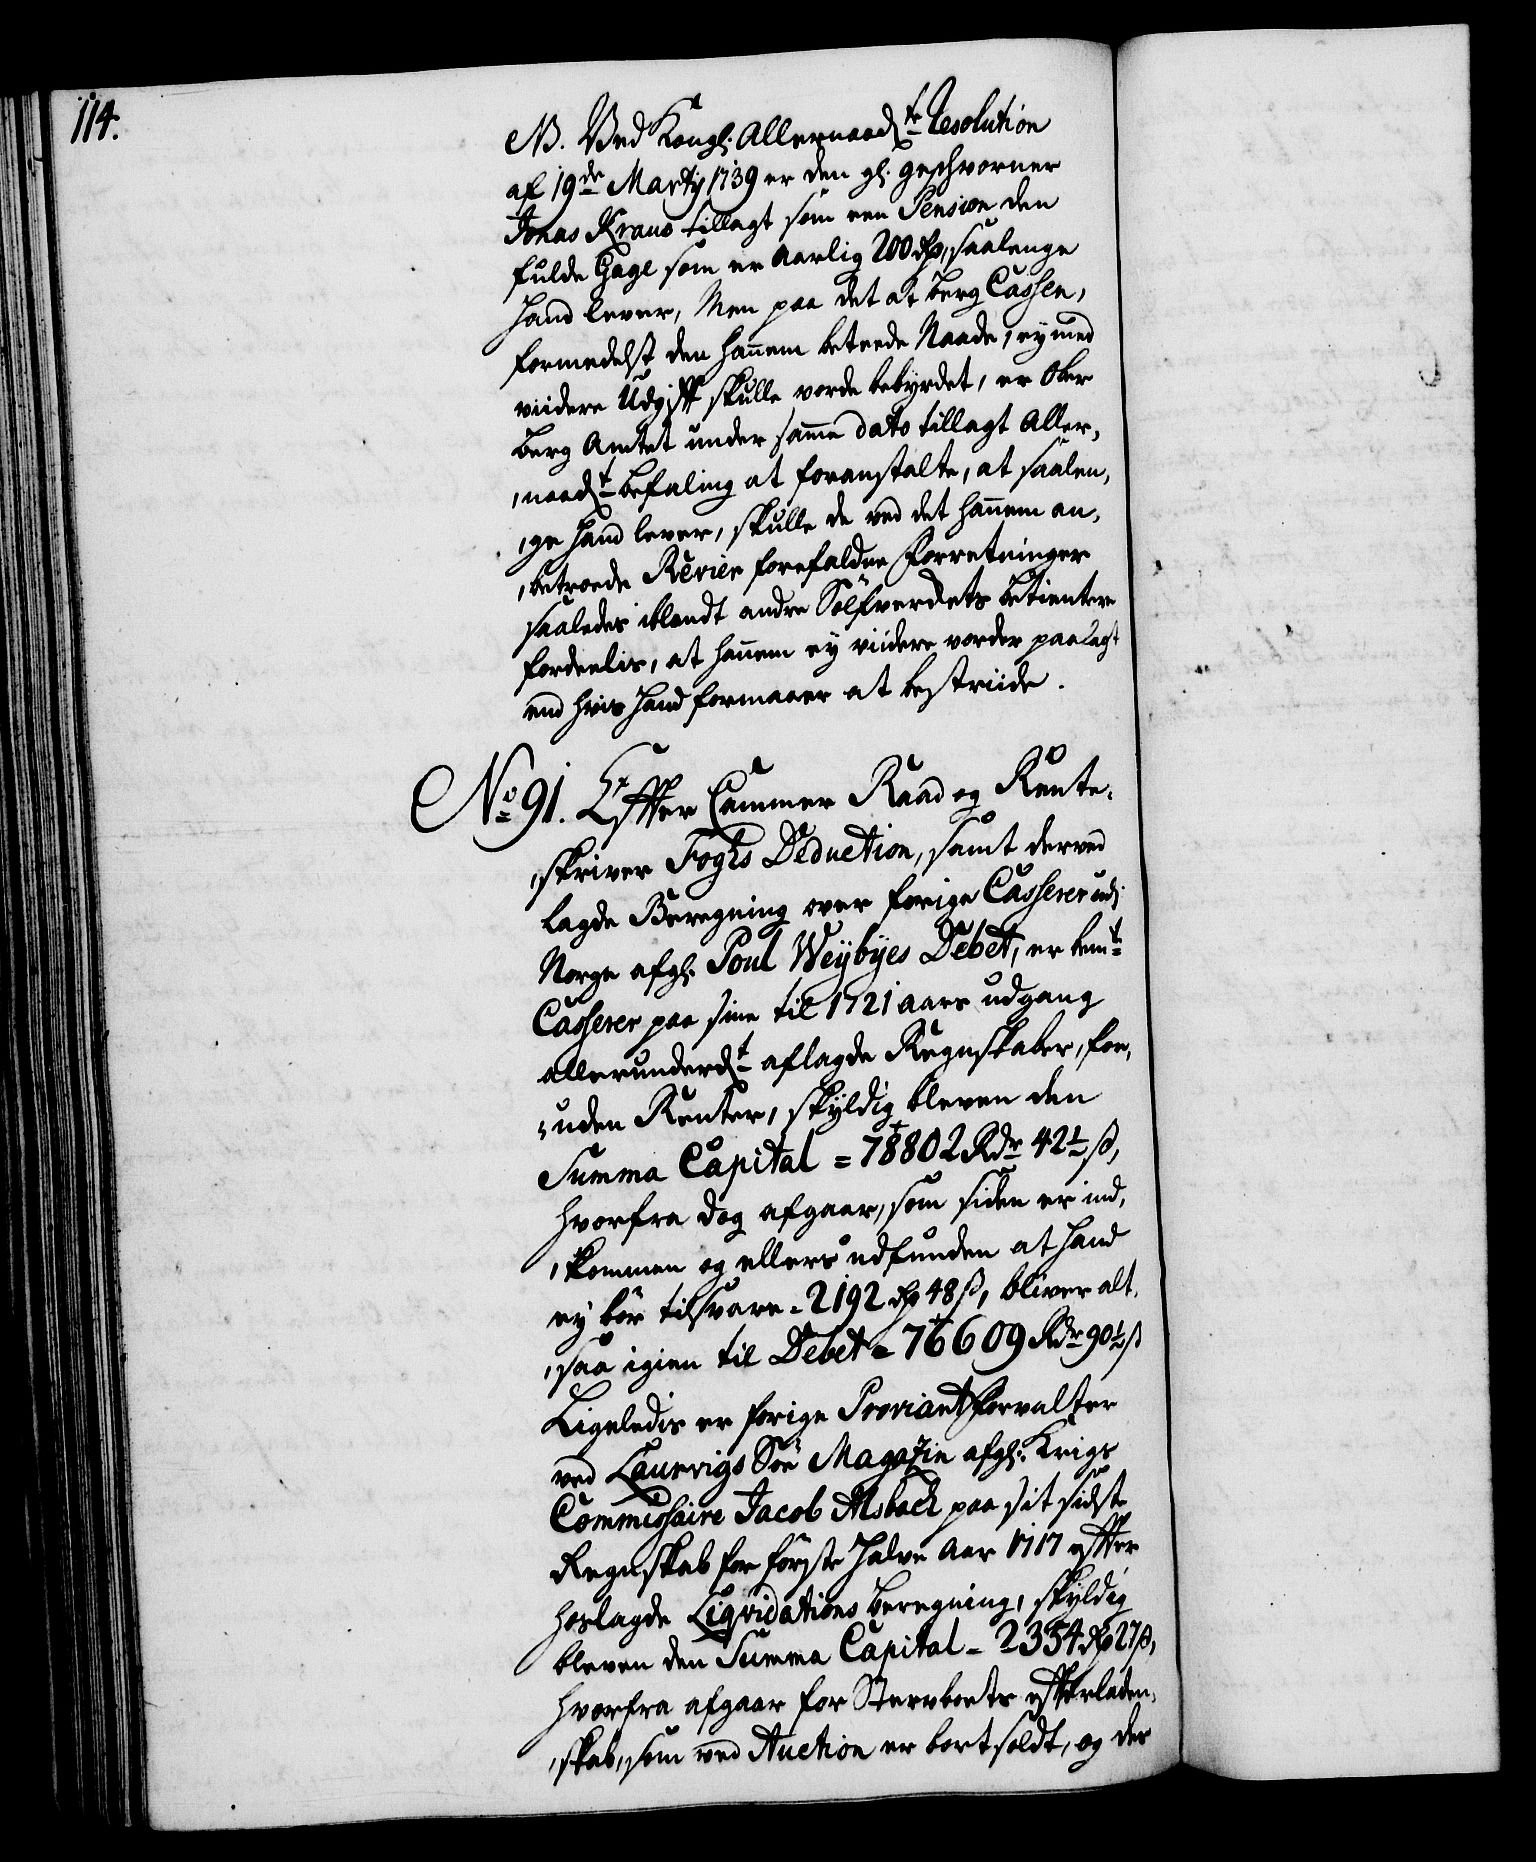 114.
NB. Ved Kongl. Allernaads te Resolution
af 19de Martij 1739 er den gl. geschworner
Jonas Kraus tillagt som een Pension den
fulde Gage som er aarlig 200 rdr, saalenge
hand lever, Men paa det at berg Cassen,
formedelst den hannem beteede Naade, ey med
viidere Udgift skulle vorde bebyrdet, er Ober
berg Amtet under samme dato tillagt Aller,
,naads t befaling at foranstalte, at saalen,
,ge hand lever, skulle de ved det hannem an,
,betroede Revier forefaldne Forretninger
saaledes iblandt andre Sölfverckets betientere
fordeelis, at hannem ey viidere vorder paalagt
end hvis hand formaaer at bestriide.
No 91. Effter Cammer Raad og Rente,
,skriver Foghs Deduction, samt derved
lagde Beregning over forige Casserer udi
Norge afgl. Poul Weybyes Debet, er bemte
Casserer paa sine til 1721 aars udgang
allerunderds t aflagde Regnskaber, for,
,uden Renter, skyldig bleven den
Summa Capital = 78802 Rdr 42½ ß,
hvorfra dog afgaar, som siden er ind,
,kommen og ellers udfunden at hand
ey bör tilsvare = 2192 rdr 48 ß, bliver alt,
,saa igien til Debet = 76609 Rdr 90½ ß
Ligeledis er forige Proviantforvalter
ved Laurvigs Söe Magazin afgl. Krigs
Commissaire Jacob Alsbach paa sit sidste
Regnskab for förste halve Aar 1717 effter
hoslagde Liqvidations beregning, skyldig
bleven den Summa Capital = 2354 rdr 27 ß,
hvorfra afgaar for Sterboets effterladen,
,skab, som ved Auction er bortsoldt, og der